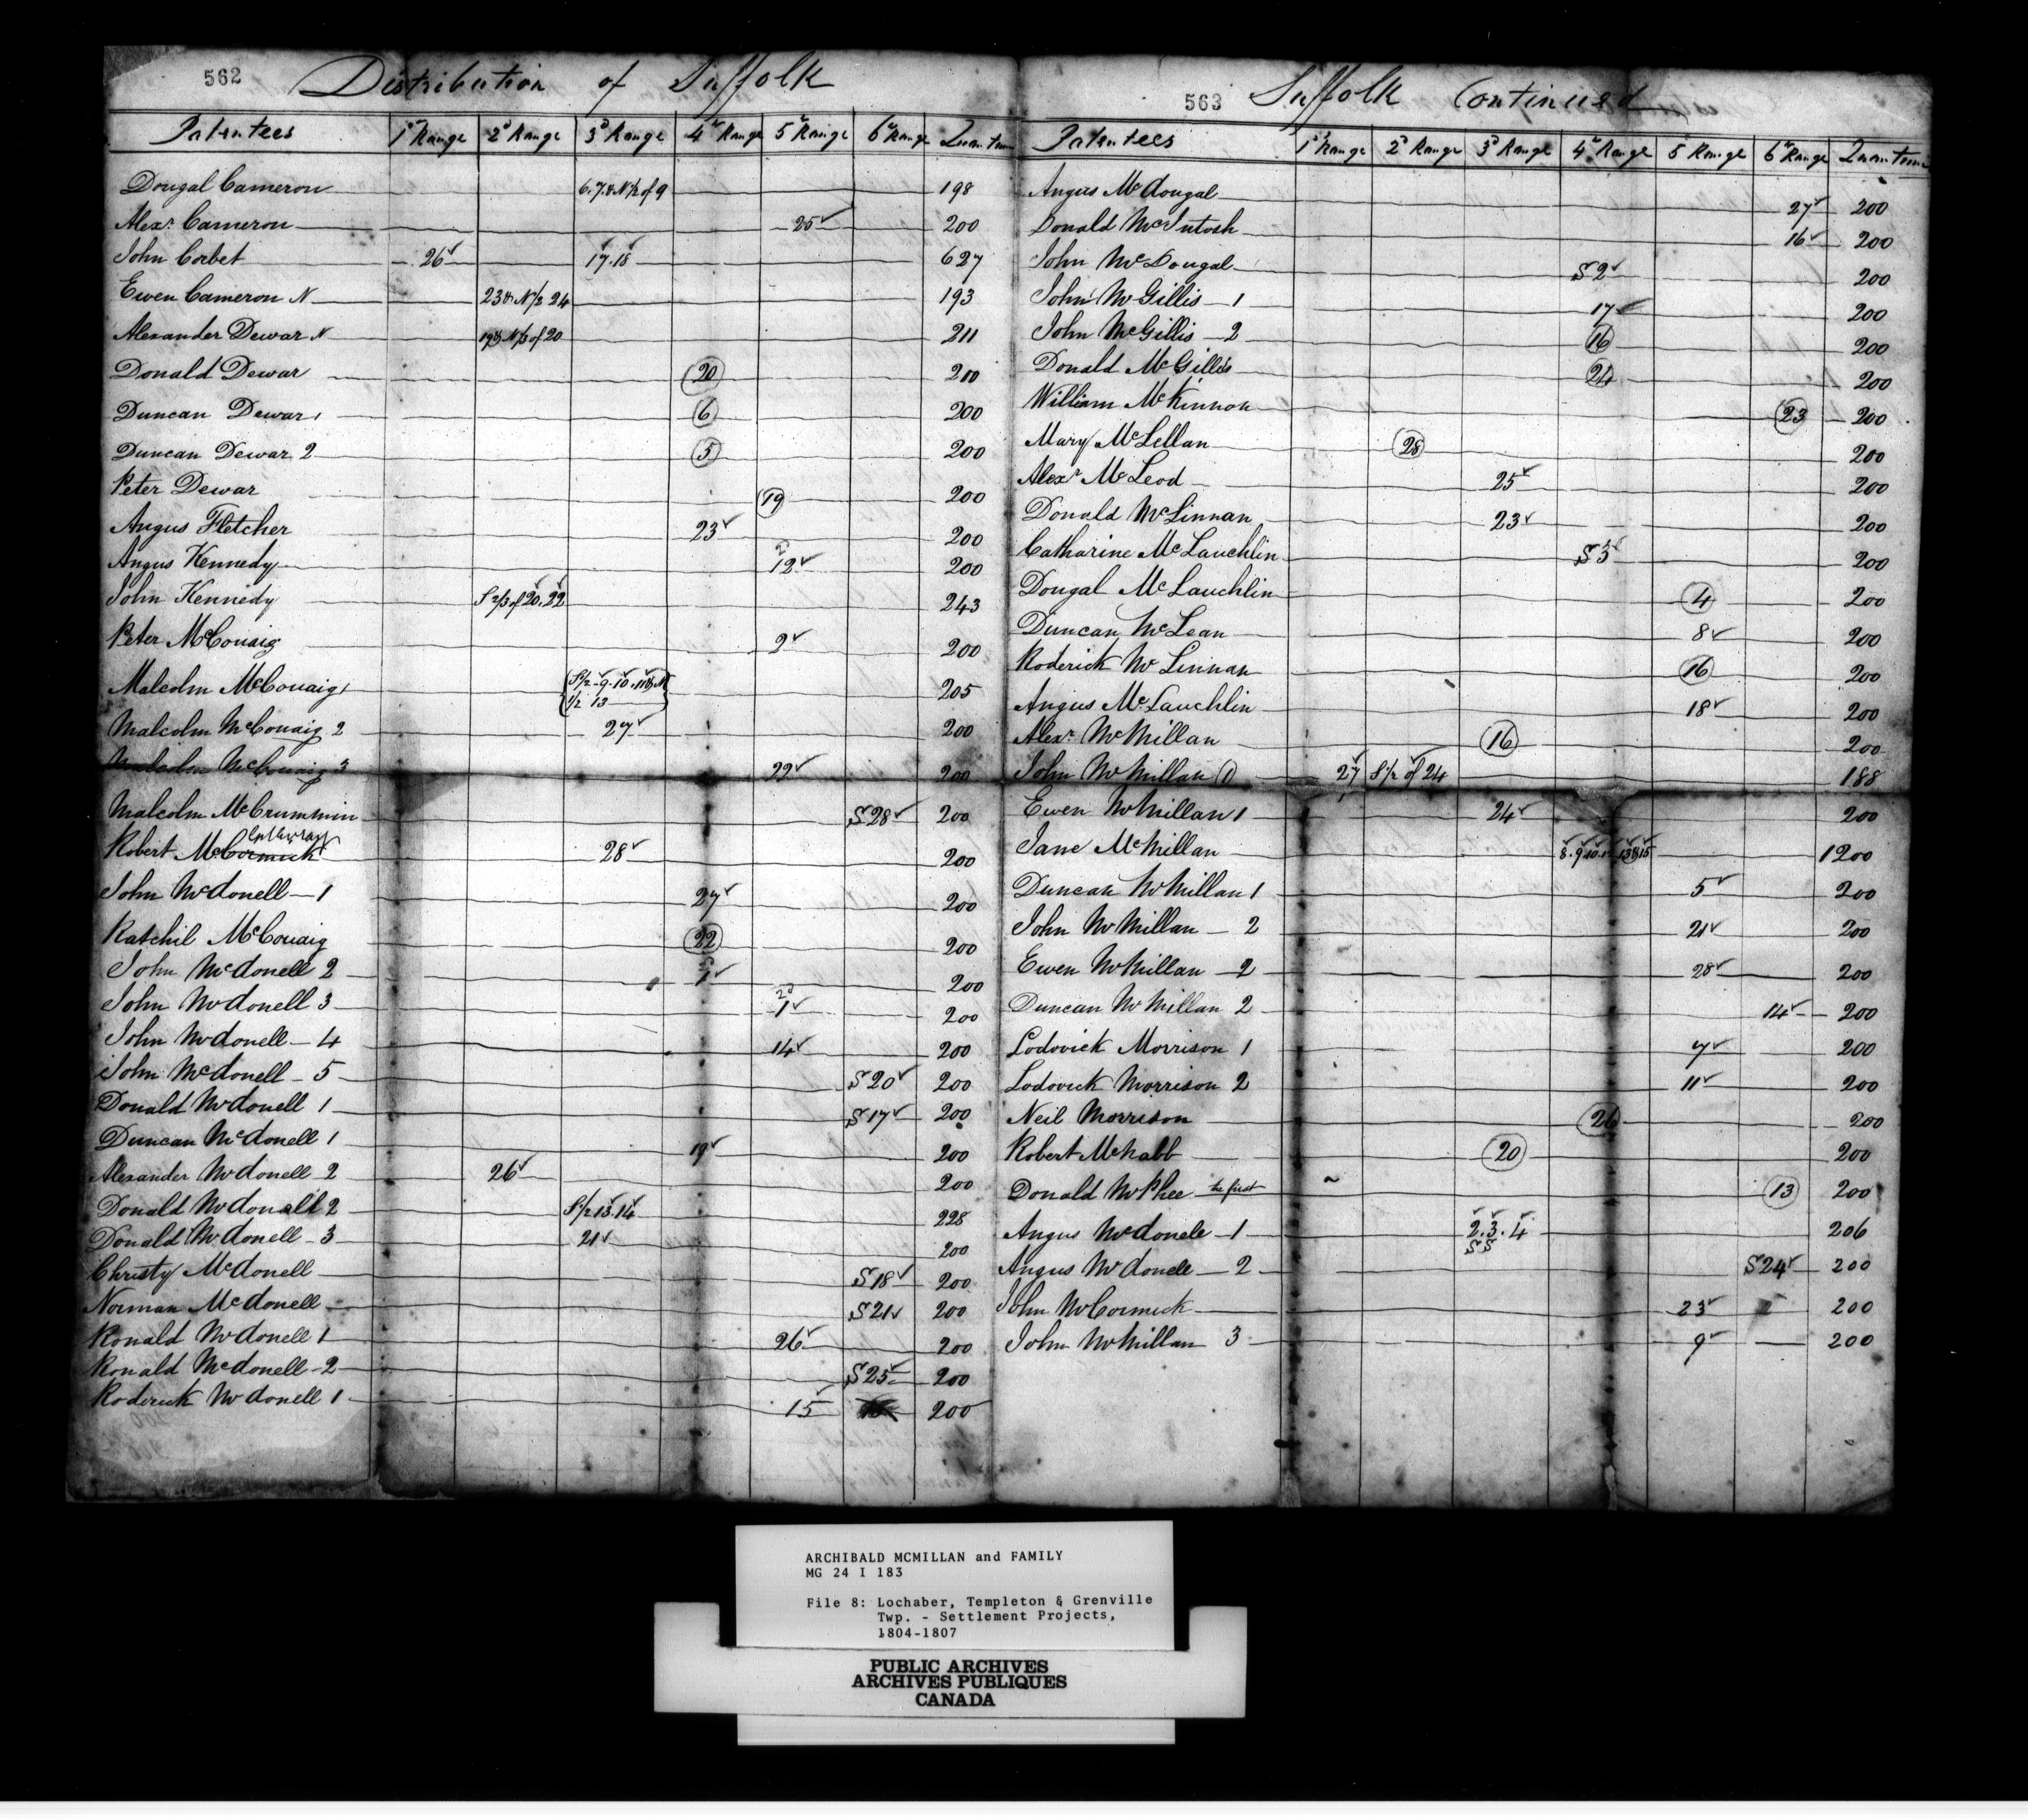 562
Distribution of Suffolk
Patentees 1st Range 2d Range 3d Range 4th Range 5th Range 6th Range Quantum
Dougal Cameron 6.7.& N 1/2 of 9 198
Alexr. Cameron 25 200
John Corbet 26 17.18 627
Ewen Cameron N 23 & N 1/2 24 193
Alexander Dewar N 19 & N 1/3 of 20 211
Donald Dewar 20 200
Duncan Dewar 1 6 200
Duncan Dewar 2 5 200
Peter Dewar 19 200
Angus Fletcher 23 200
Angus Kennedy 12 200
John Kennedy S 2/3 of 20.22 243
Peter McCouaig 2 200
Malcolm McCouaig 1 S 1/2 9.10.11 & N 1/2 13 205
Malcolm McCouaig 2 27 200
Malcolm McCouaig 3 22 200
Malcolm McCrummin S 28 200
Robert McCormick 28 200
John McDonell 1 27 200
Ratchil McCouaig 22 200
John McDonell 2 1 200
John McDonell 3 1 200
John McDonell 4 14 200
John McDonell 5 S 20 200
Donald McDonell 1 S 17 200
Duncan McDonell 1 19 200
Alexander McDonell 2 26 200
Donald McDonald 2 S 1/2 13.14 228
Donald McDonell 3 21 200
Christy McDonell S 18 200
Norman McDonell S 21 200
Ronald McDonell 1 26 200
Ronald McDonell 2 S 25 200
Roderick McDonell 1 15 200
563
Suffolk Continued
Patentees 1st Range 2d Range 3d Range 4th Range 5 Range 6th Range Quantum
Angus McDougal 27 200
Donald McIntosh 16 200
John McDougal S 2 200
John McGillis 1 17 200
John McGillis 2 16 200
Donald McGillis 24 200
William McKinnon 23 200
Mary McLellan 28 200
Alexr McLeod 25 200
Donald McLinnan 23 200
Catharine McLauchlin S 3 200
Dougal McLauchlin 4 200
Duncan McLean 8 200
Roderick McLinnan 16 200
Angus McLauchlin 18 200
Alexr. McMillan 16 200
John McMillan 1 27 S 1/2 of 24 188
Ewen McMillan 1 24 200
Jane McMillan 8.9.10. 13 & 15 1200
Duncan McMillan 1 5 200
John McMillan 2 21 200
Ewen McMillan 2 28 200
Duncan McMillan 2 14 200
Lodovick Morrison 1 7 200
Lodovick Morrison 2 11 200
Neil Morrison 26 200
Robert McNabb 20 200
Donald McPhee the first 13 200
Angus McDonele 1 2.3.4 206
S S
Angus McDonele 2 S 24 200
John McCormick 23 200
John McMillan 3 9 200
ARCHIBALD MCMILLAN and FAMILY
MG 24 I 183
File 8: Lochaber, Templeton & Grenville
Twp. - Settlement Projects,
1804-1807
PUBLIC ARCHIVES
ARCHIVES PUBLIQUES
CANADA